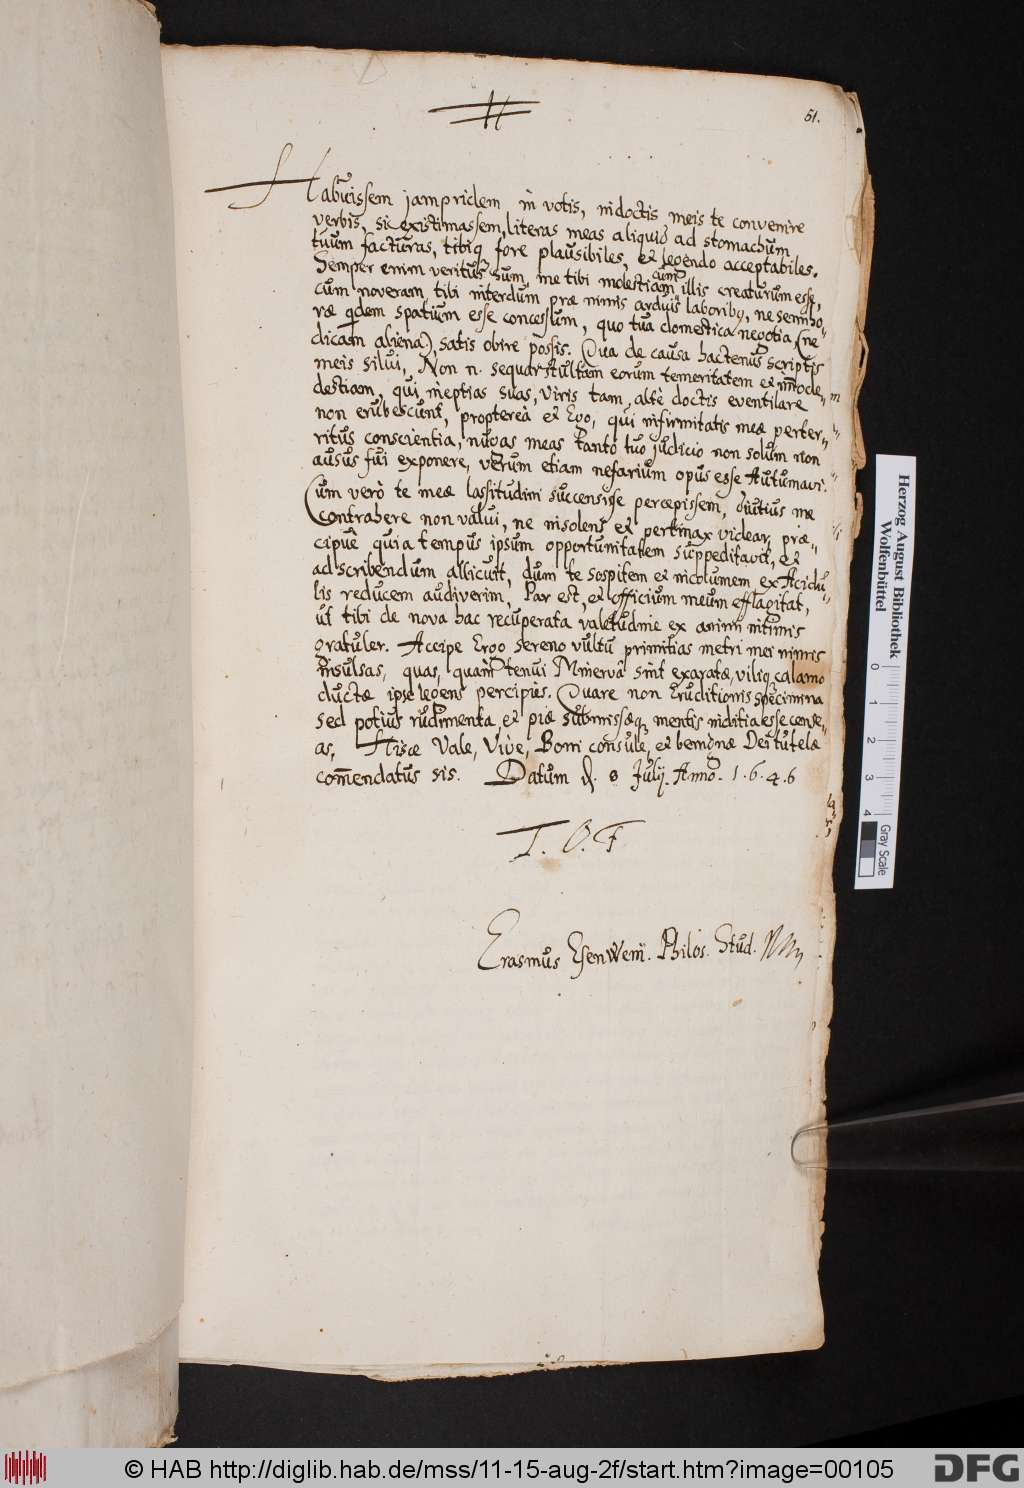 51.
Habuissem jampridem in votis, indoctis meis te convenire
verbis, si existimassem, literas meas aliquid ad stomachum
tuum facturas, tibiq fore plausibiles, et legendo acceptabiles.
Semper enim veritus sum, me tibi molestiam cum illis creaturum esse,
cum noveram, tibi interdum præ nimis arduis laboribq, ne semiho-
ræ qdem spatium esse concessum, quo tua domestica negotia, (ne
dicam aliena), satis obire possis. Qua de causa hactenus scriptis
meis silui, Non n. sequar stultam eorum temeritatem et imode-
destiam, qui ineptias suas, viris tam, altè doctis eventilare
non erubescunt, propterea et Ego, qui infirmitatis meæ perter-
ritus conscientia, nugas meas tanto tuo judicio non solum non
ausus fui exponere, verum etiam nefarium opus esse Autumavi.
Cum verò te meæ lassitudini succensisse percepissem, diutius me
contrahere non valui, ne insolens et pertinax videar, præ-
cipuè quia tempus ipsum opportunitatem suppeditavit, et
ad scribendum allicuit, dum te sospitem et incolumem ex Acidu-
lis reducem audiverim, Par est, et officium meum efflagitat,
ut tibi de nova hac recuperata valetudine ex animi intimis
gratuler. Accipe Ergo sereno vultu primitias metri mei nimis
insulsas, quas, quàm tenui Minerva sint exaratæ, viliq calamo
ductæ ipse legens percipies. Quare non Eruditionis specimina
sed potius rudimenta et piæ submissæq mentis inditia esse cense-
as, Hisce Vale, Vive, Boni consule, et benignæ Dei tutelæ
comendatus sis. Datum d. 8 Julij. Anno. 1.6.4.6
T. O. F
Erasmus Esenwein. Philos. Stud.
Herzog August Bibliothek
Wolfenbüttel
0 1 2 3 4
Gray Scale
© HAB http://diglib.hab.de/mss/11-15-aug-2f/start.htm?image=00105
DFG